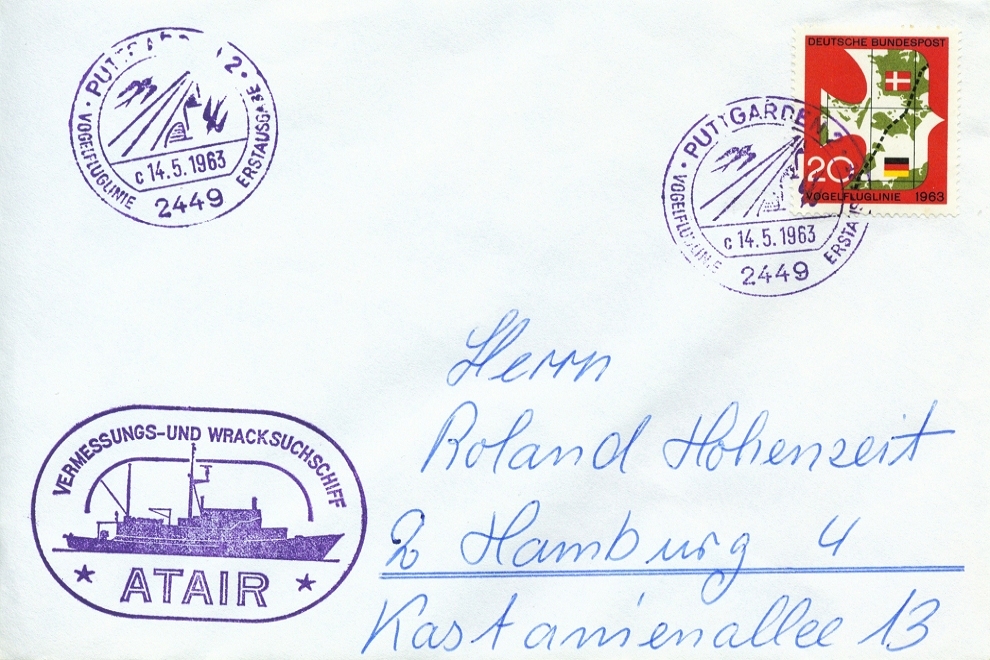 PUTTGARDEN 2
VOGELFLUGLINIE
ERSTAUSGABE
c 14.5.1963
2449
DEUTSCHE BUNDESPOST
20
VOGELFLUGLINIE 1963
PUTTGARDEN 2
VOGELFLUGLINIE
c 14.5.1963
2449
Herrn
Roland Hohenzeit
2 Hamburg 4
Kastanienallee 13
VERMESSUNGS-UND WRACKSUCHSCHIFF
ATAIR